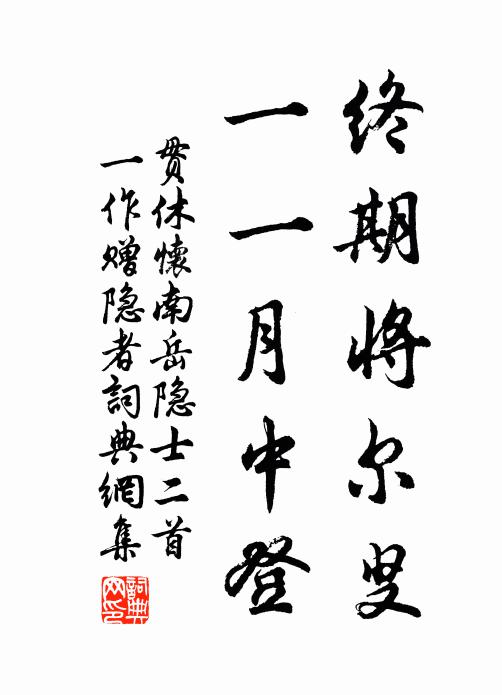 终期将尔叟
一一月中登
贯休懷南岳隐士二首
一作赠隐者詞典網集
詞典網印